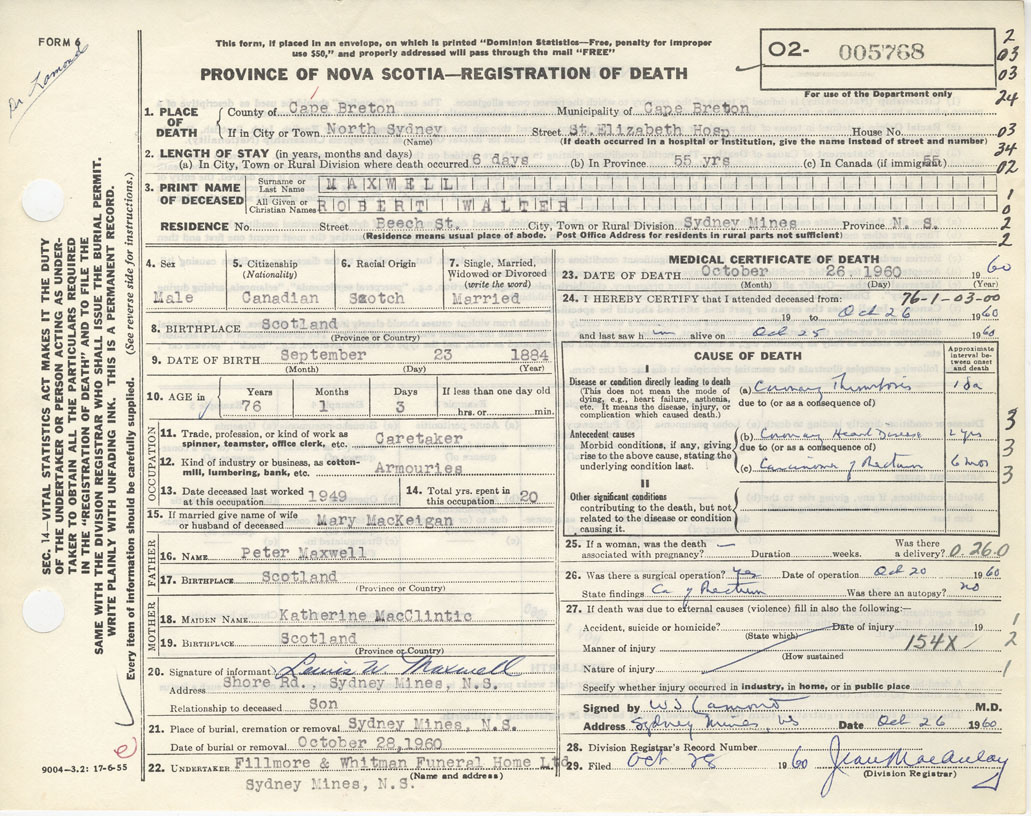 FORM 6
Dr. Lamond
This form, if placed in an envelope, on which is printed "Dominion Statistics—Free, penalty for improper
use $50," and properly addressed will pass through the mail "FREE"
PROVINCE OF NOVA SCOTIA—REGISTRATION OF DEATH
O2- 005768
For use of the Department only
2
03
03
24
03
34
02
1
0
2
2
1. PLACE OF DEATH
County of Cape Breton Municipality of Cape Breton
If in City or Town North Sydney Street St. Elizabeth Hosp House No.
(Name) (If death occurred in a hospital or institution, give the name instead of street and number)
2. LENGTH OF STAY (in years, months and days)
(a) In City, Town or Rural Division where death occurred 6 days (b) In Province 55 yrs (c) In Canada (if immigrant) 55
3. PRINT NAME OF DECEASED
Surname or Last Name MAXWELL
All Given or Christian Names ROBERT WALTER
RESIDENCE No. Street Beech St. City, Town or Rural Division Sydney Mines Province N. S.
(Residence means usual place of abode. Post Office Address for residents in rural parts not sufficient)
4. Sex
Male
5. Citizenship (Nationality)
Canadian
6. Racial Origin
Scotch
7. Single, Married, Widowed or Divorced (write the word)
Married
8. BIRTHPLACE Scotland
(Province or Country)
9. DATE OF BIRTH September 23 1884
(Month) (Day) (Year)
10. AGE in Years Months Days If less than one day old
76 1 3 hrs. or min.
OCCUPATION
11. Trade, profession, or kind of work as spinner, teamster, office clerk, etc. Caretaker
12. Kind of industry or business, as cotton-mill, lumbering, bank, etc. Armouries
13. Date deceased last worked at this occupation 1949 14. Total yrs. spent in this occupation 20
15. If married give name of wife or husband of deceased Mary MacKeigan
FATHER
16. NAME Peter Maxwell
17. BIRTHPLACE Scotland
(Province or Country)
MOTHER
18. MAIDEN NAME Katherine MacClintic
19. BIRTHPLACE Scotland
(Province or Country)
20. Signature of informant Louis W. Maxwell
Address Shore Rd. Sydney Mines, N.S.
Relationship to deceased Son
21. Place of burial, cremation or removal Sydney Mines, N.S.
Date of burial or removal October 28, 1960
22. UNDERTAKER Fillmore & Whitman Funeral Home Ltd
(Name and address)
Sydney Mines, N.S.
MEDICAL CERTIFICATE OF DEATH
23. DATE OF DEATH October 26 1960 19 60
(Month) (Day) (Year)
24. I HEREBY CERTIFY that I attended deceased from: 76-1-03-00
19 to Oct 26 1960
and last saw him alive on Oct 25 1960
CAUSE OF DEATH
Approximate interval between onset and death
I
Disease or condition directly leading to death
(This does not mean the mode of dying, e.g., heart failure, asthenia, etc. It means the disease, injury, or complication which caused death.)
(a) Coronary Thrombosis 1 da
due to (or as a consequence of)
Antecedent causes
Morbid conditions, if any, giving rise to the above cause, stating the underlying condition last.
(b) Coronary Heart Disease 2 yrs
due to (or as a consequence of)
(c) Carcinoma of Rectum 6 mos
3
3
3
3
II
Other significant conditions
contributing to the death, but not related to the disease or condition causing it.
25. If a woman, was the death associated with pregnancy? — Duration weeks. Was there a delivery? 0.26.0
26. Was there a surgical operation? yes Date of operation Oct 20 1960
State findings Ca of Rectum Was there an autopsy? no
27. If death was due to external causes (violence) fill in also the following:—
Accident, suicide or homicide? Date of injury 19
(State which)
Manner of injury 154X
(How sustained)
Nature of injury
1
2
1
Specify whether injury occurred in industry, in home, or in public place
Signed by W S Lamond M.D.
Address Sydney Mines, NS Date Oct 26 1960
28. Division Registrar's Record Number
29. Filed Oct 28 1960 Jean MacAulay
(Division Registrar)
SEC. 14—VITAL STATISTICS ACT MAKES IT THE DUTY
OF THE UNDERTAKER OR PERSON ACTING AS UNDER-
TAKER TO OBTAIN ALL THE PARTICULARS REQUIRED
IN THE "REGISTRATION OF DEATH" AND TO FILE THE
SAME WITH THE DIVISION REGISTRAR WHO SHALL ISSUE THE BURIAL PERMIT.
WRITE PLAINLY WITH UNFADING INK. THIS IS A PERMANENT RECORD.
Every item of information should be carefully supplied. (See reverse side for instructions.)
e
9004-3.2: 17-6-55